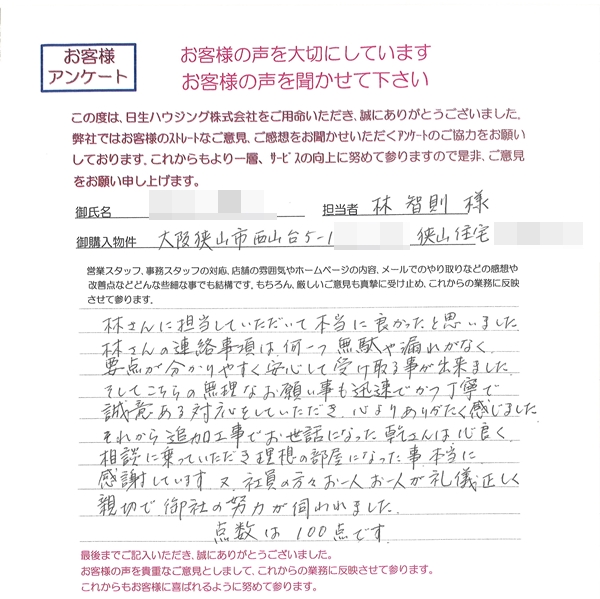 お客様
アンケート
お客様の声を大切にしています
お客様の声を聞かせて下さい
この度は、日生ハウジング株式会社をご用命いただき、誠にありがとうございました。
弊社ではお客様のストレートなご意見、ご感想をお聞かせいただくアンケートのご協力をお願い
しております。これからもより一層、サービスの向上に努めて参りますので是非、ご意見
をお願い申し上げます。
御氏名 担当者 林 智則 様
御購入物件 大阪狭山市西山台5-1 狭山住宅
営業スタッフ、事務スタッフの対応、店舗の雰囲気やホームページの内容、メールでのやり取りなどの感想や
改善点などどんな些細な事でも結構です。もちろん、厳しいご意見も真摯に受け止め、これからの業務に反映
させて参ります。
林さんに担当していただいて本当に良かったと思いました
林さんの連絡事項は何一つ無駄や漏れがなく、
要点が分かりやすく安心して受け取る事が出来ました。
そしてこちらの無理なお願い事も迅速でかつ丁寧で
誠意ある対応をしていただき、心よりありがたく感じました
それから追加工事でお世話になった乾さんは心良く
相談に乗っていただき理想の部屋になった事本当に
感謝しています 又、社員の方々お一人お一人が礼儀正しく
親切で御社の努力が伺われました。
点数は100点です。
最後までご記入いただき、誠にありがとうございました。
お客様の声を貴重なご意見としまして、これからの業務に反映させて参ります。
これからもお客様に喜ばれるように努めて参ります。